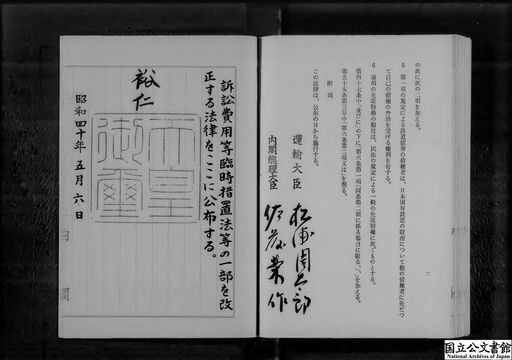 の次に次の二項を加える。
5 第一項の規定による鉄道債券の債権者は、日本国有鉄道の財産について他の債権者に先だつ
て自己の債権の弁済を受ける権利を有する。
6 前項の先取特権の順位は、民法の規定による一般の先取特権に次ぐものとする。
第四十七条中「並びに」の下に「第六条第一項(同条第二項に係る場合に限る。)、」を加える。
第五十五条第三号中「第六条第二項又は」を削る。
附則
この法律は、公布の日から施行する。
運輸大臣 松浦周太郎
内閣総理大臣 佐藤榮作
二
訴訟費用等臨時措置法等の一部を改
正する法律をここに公布する。
裕仁
天皇御璽
昭和四十年五月六日
内閣
国立公文書館
National Archives of Japan